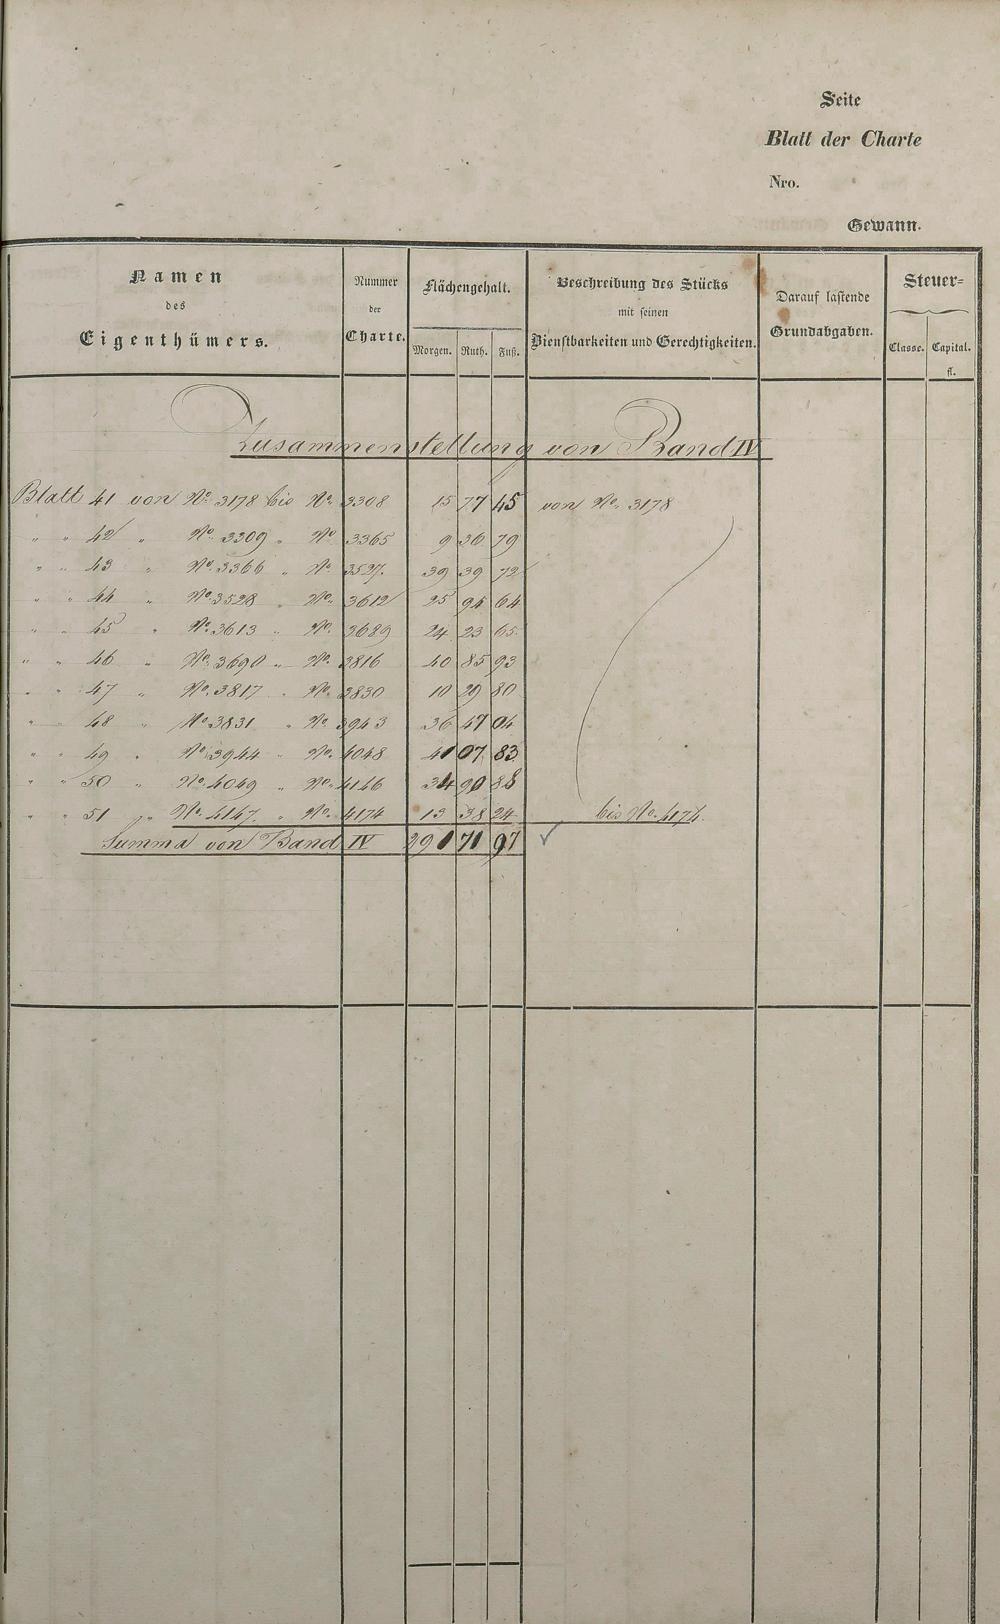 Seite
Blatt der Charte
Nro.
Gewann.
Namen des Eigenthümers.
Nummer der Charte.
Flächengehalt.
Morgen. Ruth. Fuß.
Beschreibung des Stücks mit seinen Dienstbarkeiten und Gerechtigkeiten.
Darauf lastende Grundabgaben.
Steuer-
Classe. Capital.
fl.
Zusammenstellung von Band IV
Blatt 41 von No. 3178 bis No. 3308 15 77 45 von No. 3178
" " 42 " No. 3309 " No. 3365 9 36 79
" " 43 " No. 3366 " No. 3527. 39 39 72
" " 44 " No. 3528 " No. 3612 25 94 64
" " 45 " No. 3613 " No. 3689 24 23 65
" " 46 " No. 3690 " No. 3816 40 85 93
" " 47 " No. 3817 " No. 3830 10 29 80
" " 48 " No. 3831 " No. 3943 36 47 04
" " 49 " No. 3944 " No. 4048 41 07 83
" " 50 " No. 4049 " No. 4146 34 90 88
" " 51 " No. 4147. " No. 4174 13 38 24 bis No. 4174.
Summa von Band IV 291 71 97 ✓